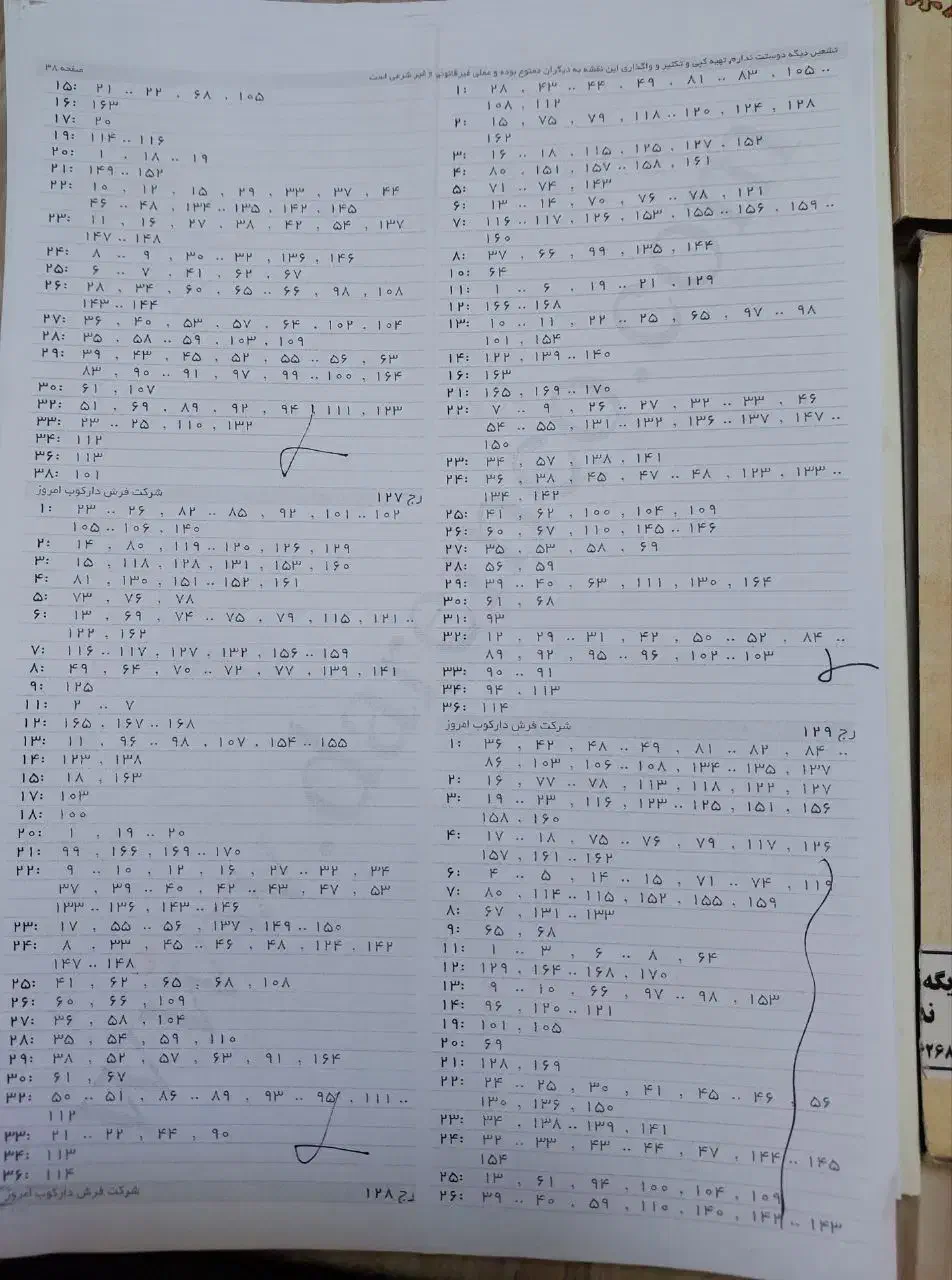 تهیه کپی و تکثیر و واگذاری این نقشه به دیگران ممنوع بوده و عملی غیرقانونی و غیر شرعی است
صفحه ۳۸
۱۵: ۲۱ .. ۲۲ , ۶۸ , ۱۰۵
۱۶: ۱۶۳
۱۷: ۲۰
۱۹: ۱۱۴ .. ۱۱۶
۲۰: ۱ , ۱۸ .. ۱۹
۲۱: ۱۴۹ .. ۱۵۲
۲۲: ۱۰ , ۱۲ , ۱۵ , ۲۹ , ۳۳ , ۳۷ , ۴۴
۴۶ .. ۴۸ , ۱۳۴ .. ۱۳۵ , ۱۴۲ , ۱۴۵
۲۳: ۱۱ , ۱۶ , ۲۷ , ۳۸ , ۴۲ , ۵۴ , ۱۳۷
۱۴۷ .. ۱۴۸
۲۴: ۸ .. ۹ , ۳۰ .. ۳۲ , ۱۳۶ , ۱۴۶
۲۵: ۶ .. ۷ , ۴۱ , ۶۲ , ۶۷
۲۶: ۲۸ , ۳۴ , ۶۰ , ۶۵ .. ۶۶ , ۹۸ , ۱۰۸
۱۴۳ .. ۱۴۴
۲۷: ۳۶ , ۴۰ , ۵۳ , ۵۷ , ۶۴ , ۱۰۲ , ۱۰۴
۲۸: ۳۵ , ۵۸ .. ۵۹ , ۱۰۳ , ۱۰۹
۲۹: ۳۹ , ۴۳ , ۴۵ , ۵۲ , ۵۵ .. ۵۶ , ۶۳
۸۳ , ۹۰ .. ۹۱ , ۹۷ , ۹۹ .. ۱۰۰ , ۱۶۴
۳۰: ۶۱ , ۱۰۷
۳۲: ۵۱ , ۶۹ , ۸۹ , ۹۲ , ۹۴ , ۱۱۱ , ۱۲۳
۳۳: ۲۳ .. ۲۵ , ۱۱۰ , ۱۳۲
۳۴: ۱۱۲
۳۶: ۱۱۳
۳۸: ۱۰۱
رج ۱۲۷ شرکت فرش دارکوب امروز
۱: ۲۳ .. ۲۶ , ۸۲ .. ۸۵ , ۹۲ , ۱۰۱ .. ۱۰۲
۱۰۵ .. ۱۰۶ , ۱۴۰
۲: ۱۴ , ۸۰ , ۱۱۹ .. ۱۲۰ , ۱۲۶ , ۱۲۹
۳: ۱۵ , ۱۱۸ , ۱۲۸ , ۱۳۱ , ۱۵۳ , ۱۶۰
۴: ۸۱ , ۱۳۰ , ۱۵۱ .. ۱۵۲ , ۱۶۱
۵: ۷۳ , ۷۶ , ۷۸
۶: ۱۳ , ۶۹ , ۷۴ .. ۷۵ , ۷۹ , ۱۱۵ , ۱۲۱ ..
۱۲۲ , ۱۶۲
۷: ۱۱۶ .. ۱۱۷ , ۱۲۷ , ۱۳۲ , ۱۵۶ .. ۱۵۹
۸: ۴۹ , ۶۴ , ۷۰ .. ۷۲ , ۷۷ , ۱۳۹ , ۱۴۱
۹: ۱۲۵
۱۱: ۲ .. ۷
۱۲: ۱۶۵ , ۱۶۷ .. ۱۶۸
۱۳: ۱۱ , ۹۶ .. ۹۸ , ۱۰۷ , ۱۵۴ .. ۱۵۵
۱۴: ۱۲۳ , ۱۳۸
۱۵: ۱۸ , ۱۶۳
۱۷: ۱۰۳
۱۸: ۱۰۰
۲۰: ۱ , ۱۹ .. ۲۰
۲۱: ۹۹ , ۱۶۶ , ۱۶۹ .. ۱۷۰
۲۲: ۹ .. ۱۰ , ۱۲ , ۱۶ , ۲۷ .. ۳۲ , ۳۴
۳۷ , ۳۹ .. ۴۰ , ۴۲ .. ۴۳ , ۴۷ , ۵۳
۱۳۳ .. ۱۳۶ , ۱۴۳ .. ۱۴۶
۲۳: ۱۷ , ۵۵ .. ۵۶ , ۱۳۷ , ۱۴۹ .. ۱۵۰
۲۴: ۸ , ۳۳ , ۴۵ .. ۴۶ , ۴۸ , ۱۲۴ , ۱۴۲
۱۴۷ .. ۱۴۸
۲۵: ۴۱ , ۶۲ , ۶۵ , ۶۸ , ۱۰۸
۲۶: ۶۰ , ۶۶ , ۱۰۹
۲۷: ۳۶ , ۵۸ , ۱۰۴
۲۸: ۳۵ , ۵۴ , ۵۹ , ۱۱۰
۲۹: ۳۸ , ۵۲ , ۵۷ , ۶۳ , ۹۱ , ۱۶۴
۳۰: ۶۱ , ۶۷
۳۲: ۵۰ .. ۵۱ , ۸۶ .. ۸۹ , ۹۳ .. ۹۵ , ۱۱۱ ..
۱۱۲
۳۳: ۲۱ .. ۲۲ , ۴۴ , ۹۰
۳۴: ۱۱۳
۳۶: ۱۱۴
رج ۱۲۸ شرکت فرش دارکوب امروز
۱: ۲۸ , ۴۳ .. ۴۴ , ۴۹ , ۸۱ .. ۸۳ , ۱۰۵ ..
۱۰۸ , ۱۱۲
۲: ۱۵ , ۷۵ , ۷۹ , ۱۱۸ .. ۱۲۰ , ۱۲۴ , ۱۲۸
۱۶۲
۳: ۱۶ .. ۱۸ , ۱۱۵ , ۱۲۵ , ۱۲۷ , ۱۵۲
۴: ۸۰ , ۱۵۱ , ۱۵۷ .. ۱۵۸ , ۱۶۱
۵: ۷۱ .. ۷۴ , ۱۴۳
۶: ۱۳ .. ۱۴ , ۷۰ , ۷۶ .. ۷۸ , ۱۲۱
۷: ۱۱۶ .. ۱۱۷ , ۱۲۶ , ۱۵۳ , ۱۵۵ .. ۱۵۶ , ۱۵۹ ..
۱۶۰
۸: ۳۷ , ۶۶ , ۹۹ , ۱۳۵ , ۱۴۴
۱۰: ۶۴
۱۱: ۱ .. ۶ , ۱۹ .. ۲۱ , ۱۲۹
۱۲: ۱۶۶ .. ۱۶۸
۱۳: ۱۰ .. ۱۱ , ۲۲ .. ۲۵ , ۶۵ , ۹۷ .. ۹۸
۱۰۱ , ۱۵۴
۱۴: ۱۲۲ , ۱۳۹ .. ۱۴۰
۱۶: ۱۶۳
۲۱: ۱۶۵ , ۱۶۹ .. ۱۷۰
۲۲: ۷ .. ۹ , ۲۶ .. ۲۷ , ۳۲ .. ۳۳ , ۴۶
۵۴ .. ۵۵ , ۱۳۱ .. ۱۳۲ , ۱۳۶ .. ۱۳۷ , ۱۴۷ ..
۱۵۰
۲۳: ۳۴ , ۵۷ , ۱۳۸ , ۱۴۱
۲۴: ۳۶ , ۳۸ , ۴۵ , ۴۷ .. ۴۸ , ۱۲۳ , ۱۳۳ ..
۱۳۴ , ۱۴۲
۲۵: ۴۱ , ۶۲ , ۱۰۰ , ۱۰۴ , ۱۰۹
۲۶: ۶۰ , ۶۷ , ۱۱۰ , ۱۴۵ .. ۱۴۶
۲۷: ۳۵ , ۵۳ , ۵۸ , ۶۹
۲۸: ۵۶ , ۵۹
۲۹: ۳۹ .. ۴۰ , ۶۳ , ۱۱۱ , ۱۳۰ , ۱۶۴
۳۰: ۶۱ , ۶۸
۳۱: ۹۳
۳۲: ۱۲ , ۲۹ .. ۳۱ , ۴۲ , ۵۰ .. ۵۲ , ۸۴ ..
۸۹ , ۹۲ , ۹۵ .. ۹۶ , ۱۰۲ .. ۱۰۳
۳۳: ۹۰ .. ۹۱
۳۴: ۹۴ , ۱۱۳
۳۶: ۱۱۴
رج ۱۲۹ شرکت فرش دارکوب امروز
۱: ۳۶ , ۴۲ , ۴۸ .. ۴۹ , ۸۱ .. ۸۲ , ۸۴ ..
۸۶ , ۱۰۳ , ۱۰۶ .. ۱۰۸ , ۱۳۴ .. ۱۳۵ , ۱۳۷
۲: ۱۶ , ۷۷ .. ۷۸ , ۱۱۳ , ۱۱۸ , ۱۲۲ , ۱۲۷
۳: ۱۹ .. ۲۳ , ۱۱۶ , ۱۲۳ .. ۱۲۵ , ۱۵۱ , ۱۵۶
۱۵۸ , ۱۶۰
۴: ۱۷ .. ۱۸ , ۷۵ .. ۷۶ , ۷۹ , ۱۱۷ , ۱۲۶
۱۵۷ , ۱۶۱ .. ۱۶۲
۶: ۴ .. ۵ , ۱۴ .. ۱۵ , ۷۱ .. ۷۴ , ۱۱۹
۷: ۸۰ , ۱۱۴ .. ۱۱۵ , ۱۵۲ , ۱۵۵ , ۱۵۹
۸: ۶۷ , ۱۳۱ .. ۱۳۳
۹: ۶۵ , ۶۸
۱۱: ۱ .. ۳ , ۶ .. ۸ , ۶۴
۱۲: ۱۲۹ , ۱۶۴ .. ۱۶۸ , ۱۷۰
۱۳: ۹ .. ۱۰ , ۶۶ , ۹۷ .. ۹۸ , ۱۵۳
۱۴: ۹۶ , ۱۲۰ .. ۱۲۱
۱۹: ۱۰۱ , ۱۰۵
۲۰: ۶۹
۲۱: ۱۲۸ , ۱۶۹
۲۲: ۲۴ .. ۲۵ , ۳۰ , ۴۱ , ۴۵ .. ۴۶ , ۵۶
۱۳۰ , ۱۳۶ , ۱۵۰
۲۳: ۳۴ , ۱۳۸ .. ۱۳۹ , ۱۴۱
۲۴: ۳۲ .. ۳۳ , ۴۳ .. ۴۴ , ۴۷ , ۱۴۴ .. ۱۴۵
۱۵۴
۲۵: ۱۳ , ۶۱ , ۹۴ , ۱۰۰ , ۱۰۴ , ۱۰۹
۲۶: ۳۹ .. ۴۰ , ۵۹ , ۱۱۰ , ۱۴۰ , ۱۴۲ .. ۱۴۳